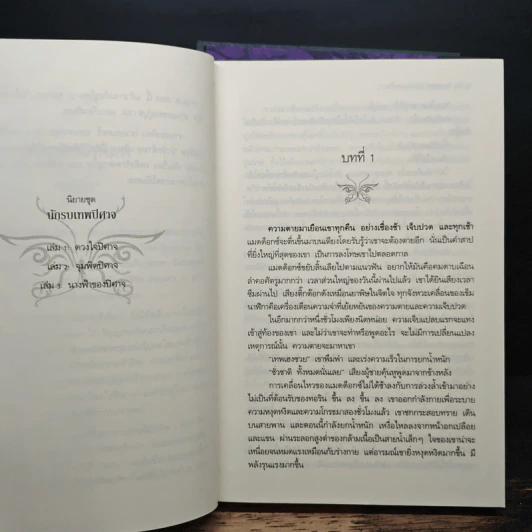 นิยายชุด
นักรบเทพปีศาจ
เล่ม 1 ดวงใจปีศาจ
เล่ม 2 จุมพิตปีศาจ
เล่ม 3 นางฟ้าของปีศาจ
บทที่ 1
ความตายมาเยือนเขาทุกคืน อย่างเชื่องช้า เจ็บปวด และทุกเช้า
แมดด็อกซ์จะตื่นขึ้นมาบนเตียงโดยรู้ว่าเขาจะต้องตายอีก นั่นเป็นคำสาป
ที่ยิ่งใหญ่ที่สุดของเขา เป็นการลงโทษเขาไปตลอดกาล
แมดด็อกซ์ขยับลิ้นเลียไปตามแนวฟัน อยากให้มันคือคมดาบเฉือน
ลำคอศัตรูมากกว่า เวลาส่วนใหญ่ของวันนี้ผ่านไปแล้ว เขาได้ยินเสียงเวลา
ซึมผ่านไป เสียงติ๊กต็อกดังเหมือนยาพิษในจิตใจ ทุกจังหวะเคลื่อนของเข็ม
นาฬิกาคือเครื่องเตือนความจำที่เย้ยหยันของความตายและความเจ็บปวด
ในอีกมากกว่าหนึ่งชั่วโมงเพียงนิดหน่อย ความเจ็บแปลบแรกจะแทง
เข้าสู่ท้องของเขา และไม่ว่าเขาจะทำหรือพูดอะไร จะไม่มีการเปลี่ยนแปลง
เหตุการณ์นั้น ความตายจะมาหาเขา
"เทพเฮงซวย" เขาพึมพำ และเร่งความเร็วในการยกน้ำหนัก
"ชั่วชาติ ทั้งหมดนั่นเลย" เสียงผู้ชายคุ้นหูพูดมาจากข้างหลัง
การเคลื่อนไหวของแมดด็อกซ์ไม่ได้ช้าลงกับการล่วงล้ำเข้ามาอย่าง
ไม่เป็นที่ต้อนรับของทอริน ขึ้น ลง ขึ้น ลง เขาออกกำลังกายเพื่อระบาย
ความหงุดหงิดและความโกรธมาสองชั่วโมงแล้ว เขาชกกระสอบทราย เดิน
บนสายพาน และตอนนี้กำลังยกน้ำหนัก เหงื่อไหลลงจากหน้าอกเปลือย
และแขน ผ่านระลอกสูงต่ำของกล้ามเนื้อเป็นสายน้ำเล็กๆ ใจของเขาน่าจะ
เหนื่อยจนหมดแรงเหมือนกับร่างกาย แต่อารมณ์เขายิ่งหงุดหงิดมากขึ้น มี
พลังรุนแรงมากขึ้น